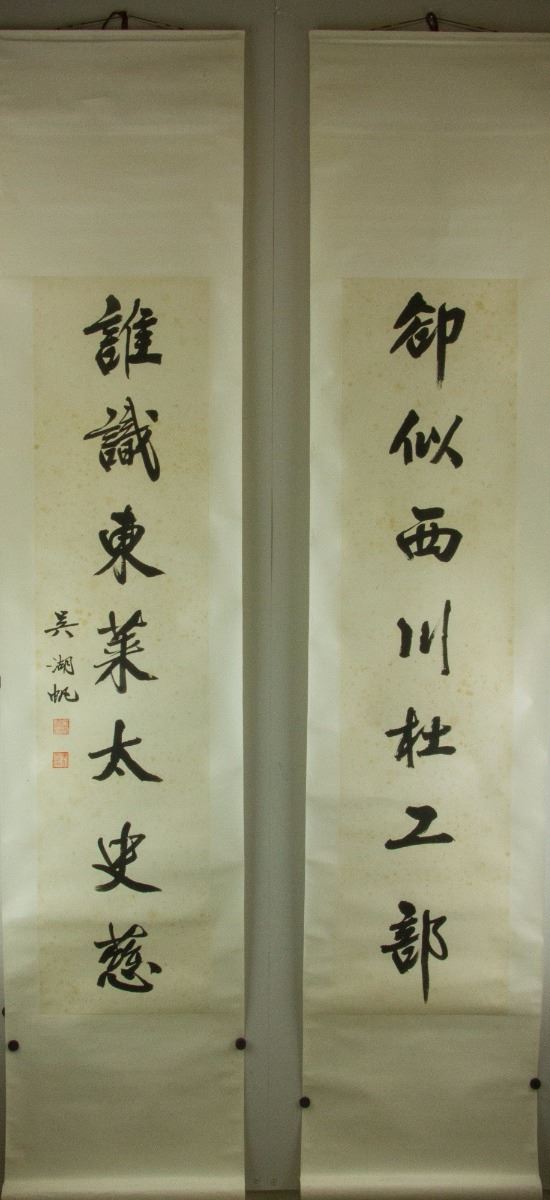 卻似西川杜工部
誰識東萊太史慈
吳湖帆